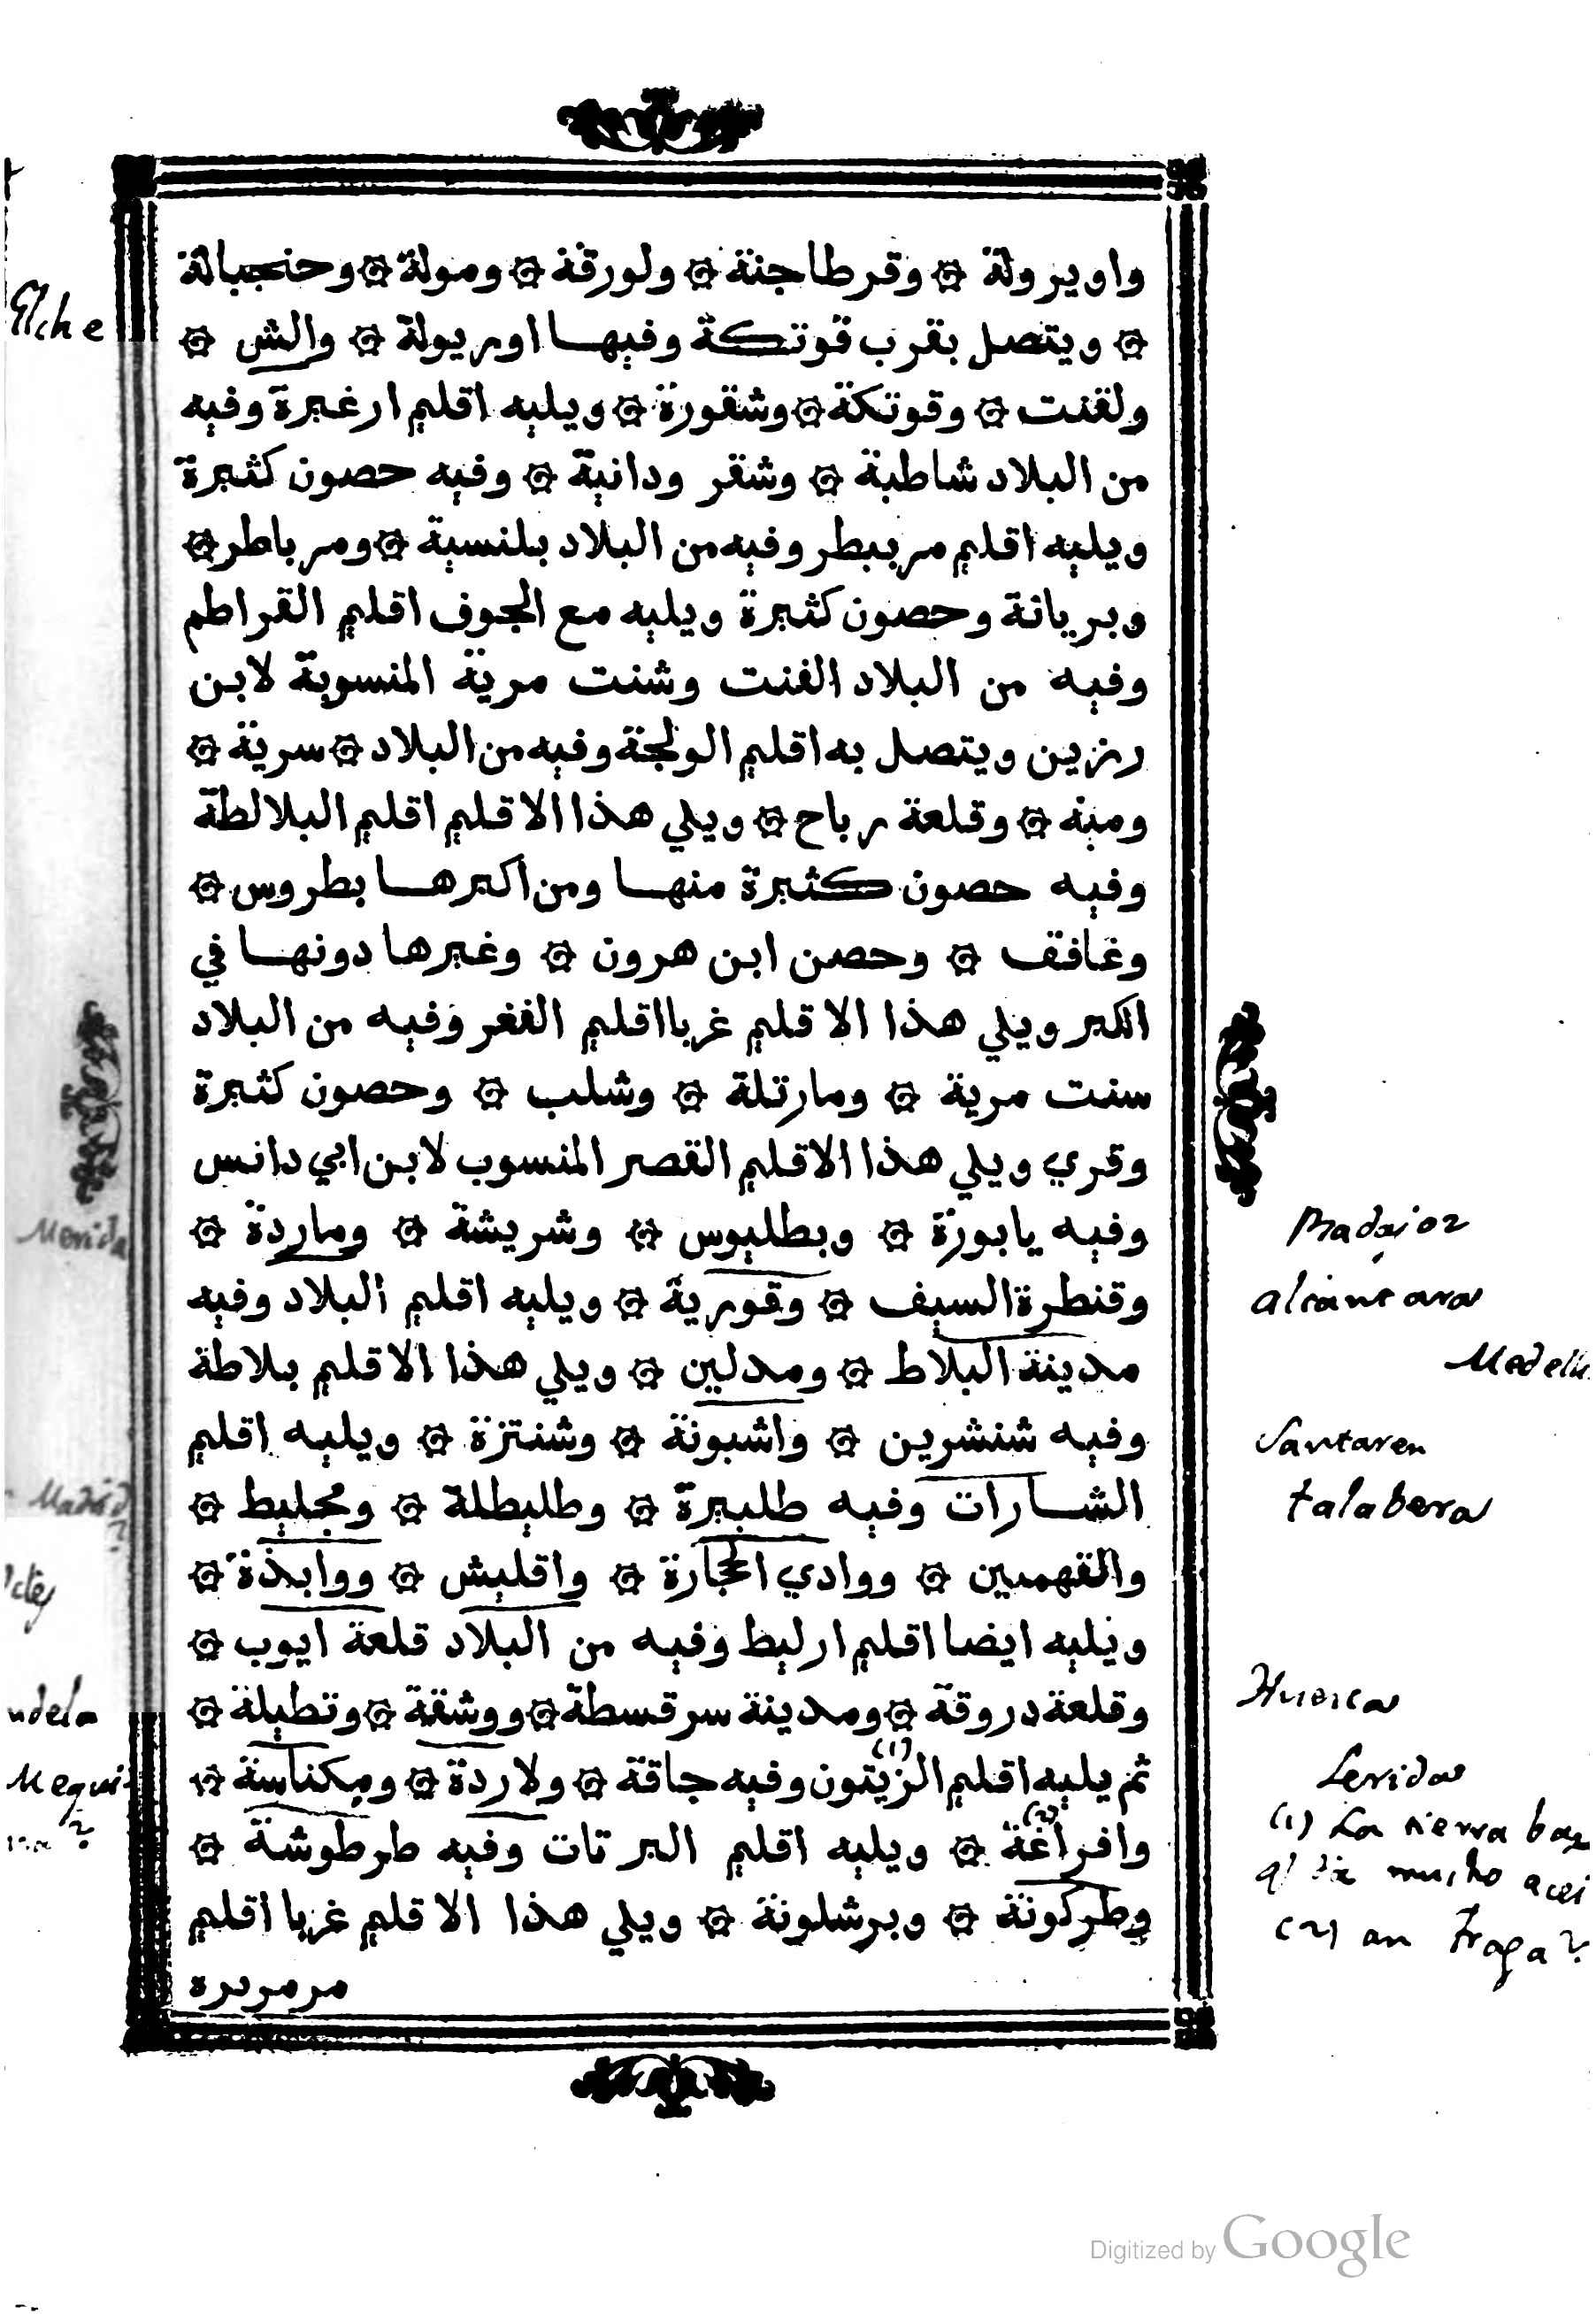 واويرولة ۞ وقرطاجنة ۞ ولورقة ۞ ومولة ۞ وحنجبالة
۞ ويتصل بقرب قوتكة وفيها اوريولة ۞ والش ۞
ولقنت ۞ وقوتكة ۞ وشقورة ۞ ويليه اقليم ارغيرة وفيه
من البلاد شاطبة ۞ وشقر ودانية ۞ وفيه حصون كثيرة
ويليه اقليم مربيطر وفيه من البلاد بلنسية ۞ ومرباطر ۞
وبريانة وحصون كثيرة ويليه مع الجوف اقليم القراطم
وفيه من البلاد الفنت وشنت مرية المنسوبة لابن
رزين ويتصل به اقليم الولجة وفيه من البلاد ۞ سرية ۞
ومية ۞ وقلعة رباح ۞ ويلي هذا الاقليم اقليم البلالطة
وفيه حصون كثيرة منها ومن اكبرها بطروس ۞
وغافق ۞ وحصن ابن هرون ۞ وغيرها دونها في
الكبر ويلي هذا الاقليم غربا اقليم الفغر وفيه من البلاد
سنت مرية ۞ ومارتلة ۞ وشلب ۞ وحصون كثيرة
وقري ويلي هذا الاقليم القصر المنسوب لابن ابي دانس
وفيه يابورة ۞ وبطليوس ۞ وشريشة ۞ وماردة ۞
وقنطرة السيف ۞ وقورية ۞ ويليه اقليم البلاد وفيه
مدينة البلاط ۞ ومدلين ۞ ويلي هذا الاقليم بلاطة
وفيه شنشرين ۞ واشبونة ۞ وشنتزة ۞ ويليه اقليم
الشارات وفيه طلبيرة ۞ وطليطلة ۞ ومجليط ۞
والقهميين ۞ ووادي الحجارة ۞ واقليش ۞ ووابذة ۞
ويليه ايضا اقليم ارليط وفيه من البلاد قلعة ايوب ۞
وقلعة دروقة ۞ ومدينة سرقسطة ۞ ووشقة ۞ وتطيلة ۞
ثم يليه اقليم الزيتون (1) وفيه جاقة ۞ ولاردة ۞ ومكناسة ۞
وافراغة (2) ۞ ويليه اقليم البرتات وفيه طرطوشة ۞
وطركونة ۞ وبرشلونة ۞ ويلي هذا الاقليم غربا اقليم
مرمريره
Elche
Merida
Madrid ?
ndela
Mequi
?
Badajoz
alcantara
Medelli
Santaren
talabera
Huesca
Lerida
(1) La tierra bax
mucho acei
(2) an Fraga ?
Digitized by Google